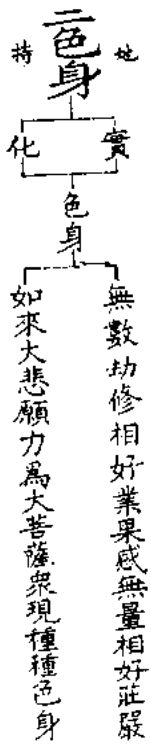 二色身
地
持
實
化
色身
無數劫修相好業果感無量相好莊嚴
如來大悲願力爲大菩薩眾現種種色身